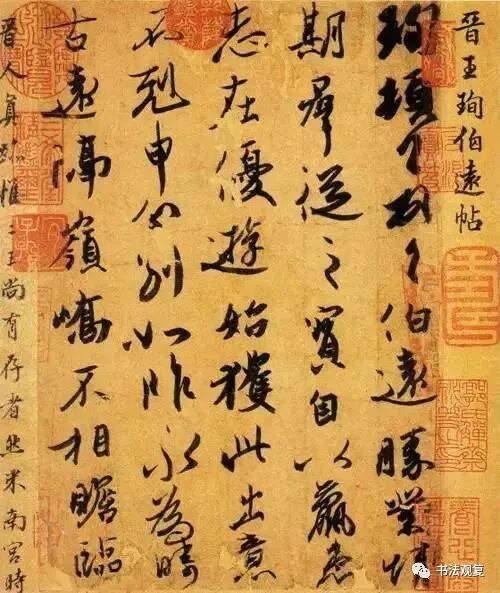 晋王珣伯遠帖
珣頓首頓首伯遠勝業情
期羣從之寳自以羸患
志在優遊始獲此出意
不剋申分别如昨永為疇
古遠隔嶺嶠不相瞻臨
晋人真跡惟二王尚有存者然米南宮時
书法观复